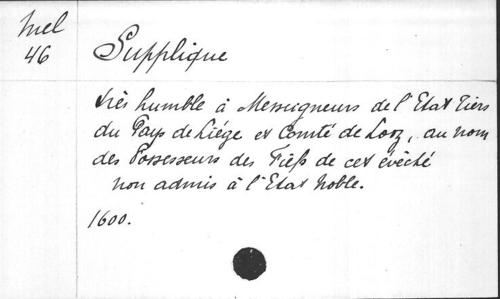 Mel
46
Supplique
très humble à Messeigneurs de l'Etat Tiers
du Pays de Liége et Comté de Looz, au nom
des Possesseurs des Fiefs de cet évêché
non admis à l'Etat Noble.
1600.